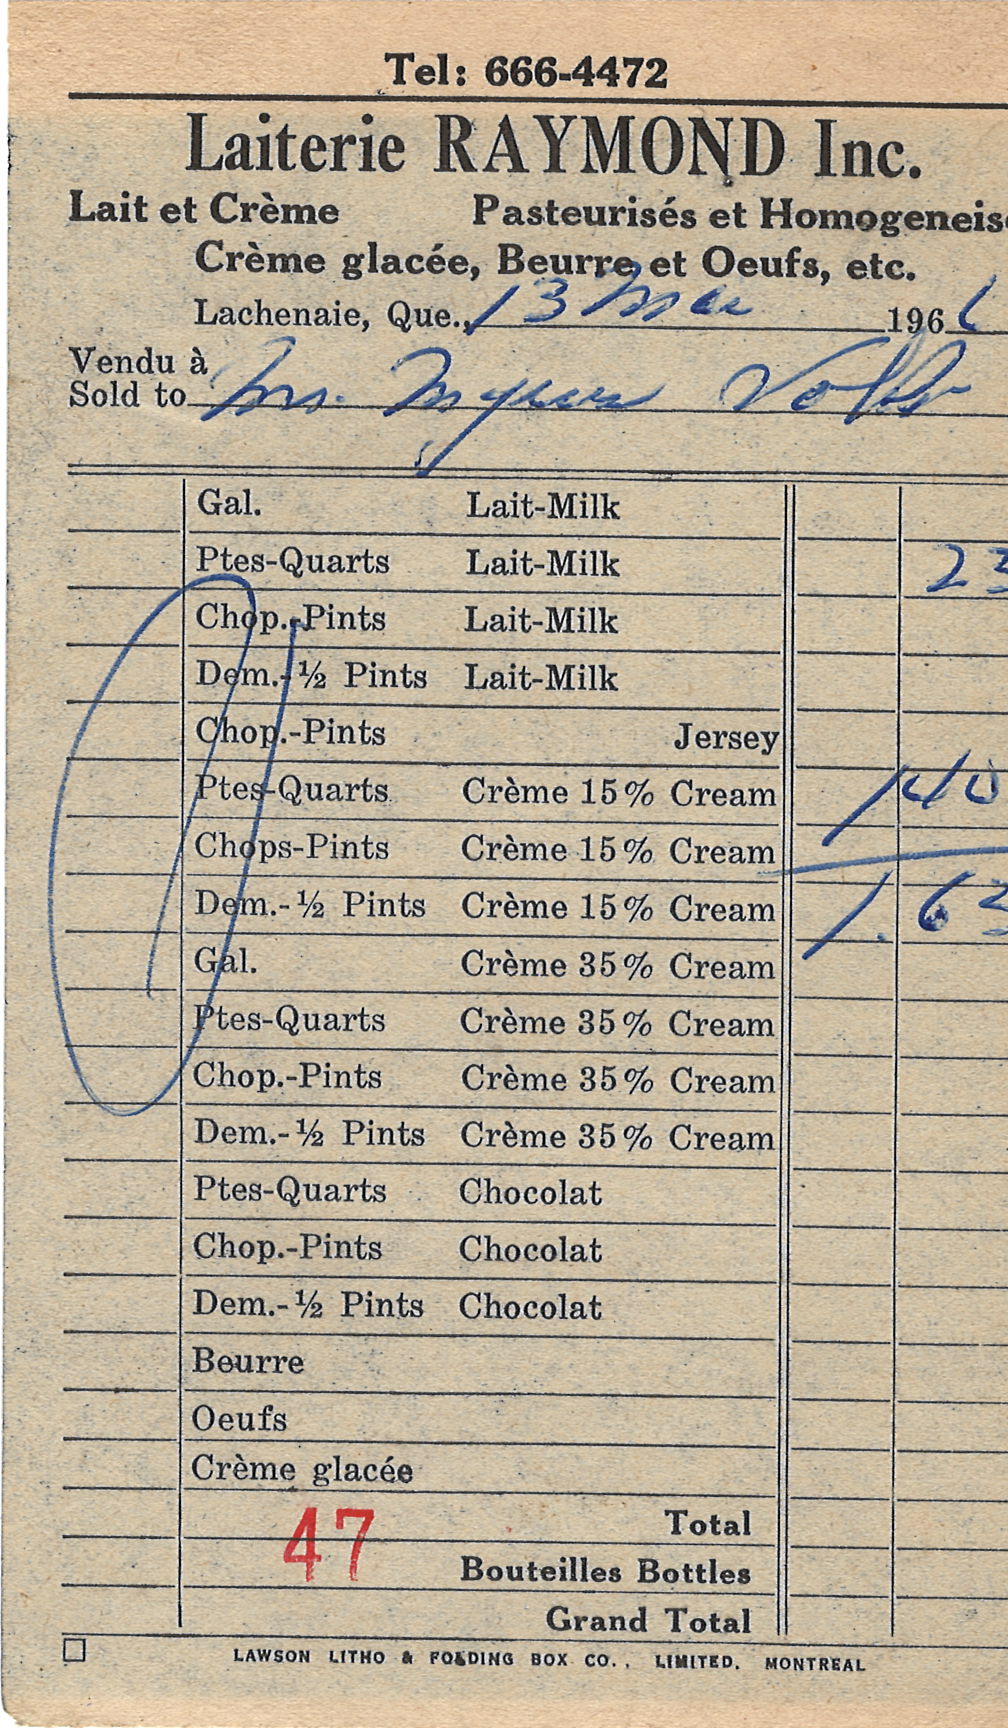 Tel: 666-4472
Laiterie RAYMOND Inc.
Lait et Crème Pasteurisés et Homogeneis
Crème glacée, Beurre et Oeufs, etc.
Lachenaie, Que., 13 Mai 196
Vendu à
Sold to Mrs.
Gal. Lait-Milk
Ptes-Quarts Lait-Milk 23
Chop.-Pints Lait-Milk
Dem.-½ Pints Lait-Milk
Chop.-Pints Jersey
Ptes-Quarts Crème 15% Cream 140
Chops-Pints Crème 15% Cream
Dem.-½ Pints Crème 15% Cream 1.63
Gal. Crème 35% Cream
Ptes-Quarts Crème 35% Cream
Chop.-Pints Crème 35% Cream
Dem.-½ Pints Crème 35% Cream
Ptes-Quarts Chocolat
Chop.-Pints Chocolat
Dem.-½ Pints Chocolat
Beurre
Oeufs
Crème glacée
47 Total
Bouteilles Bottles
Grand Total
LAWSON LITHO & FOLDING BOX CO., LIMITED, MONTREAL